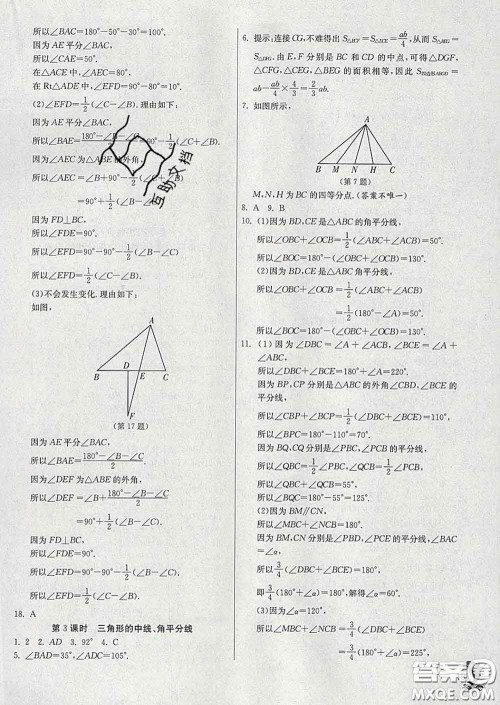 所以∠BAC=180°-50°-30°=100°.
因为 AE 平分∠BAC,
所以∠CAE=50°.
在△ACE 中,∠AEC=80°.
在 Rt△ADE 中,∠EAD=90°-80°=10°.
(2)∠EFD=1/2(∠C-∠B). 理由如下:
因为 AE 平分∠BAC,
所以∠BAE=(180°-∠B-∠C)/2=90°-1/2(∠C+∠B).
因为∠AEC 为△ABE 的外角,
所以∠AEC=∠B+90°-1/2(∠C+∠B)
=90°+1/2(∠B-∠C).
因为 FD⊥BC,
所以∠FDE=90°.
所以∠EFD=90°-90°-1/2(∠B-∠C).
所以∠EFD=1/2(∠C-∠B).
(3)不会发生变化. 理由如下:
如图,
A
B D E C
F
(第 17 题)
因为 AE 平分∠BAC,
所以∠BAE=(180°-∠B-∠C)/2.
因为∠DEF 为△ABE 的外角,
所以∠DEF=∠B+(180°-∠B-∠C)/2
=90°+1/2(∠B-∠C).
因为 FD⊥BC,
所以∠FDE=90°.
所以∠EFD=90°-90°-1/2(∠B-∠C).
所以∠EFD=1/2(∠C-∠B).
18. A
第 3 课时 三角形的中线、角平分线
1. 2 2. AD 3. 92° 4. C
5. ∠BAD=35°,∠ADC=105°.
6. 提示:连接 CG,不难得出 S△DCF=S△BCE=ab/4,从而 S△BEG=
S△DGF. 由 E,F 分别是 BC 和 CD 的中点,可得△DGF,
△CFG,△CEG,△BEG 的面积相等,因此 S四边形ABGD=
ab-ab/4×4/3=2/3ab.
7. 如图所示,
A
B M N H C
(第 7 题)
M、N、H 为 BC 的四等分点.(答案不唯一)
8. A 9. B
10. (1)因为 BD,CE 是△ABC 的角平分线,
所以∠OBC+∠OCB=1/2(∠ABC+∠ACB)=50°.
所以∠BOC=180°-(∠OBC+∠OCB)=130°.
(2)因为 BD,CE 是△ABC 角平分线,
所以∠OBC+∠OCB=1/2(∠ABC+∠ACB)
=1/2(180°-n°).
所以∠BOC=180°-(∠OBC+∠OCB)=90°+1/2n°.
11. (1) 因为 ∠DBC = ∠A + ∠ACB, ∠BCE = ∠A +
∠ABC,
所以∠DBC+∠BCE=180°+∠A=220°.
因为 BP,CP 分别是△ABC 的外角∠CBD,∠BCE 的
平分线,
所以∠CBP+∠BCP=1/2(∠DBC+∠BCE)=110°,
所以∠BPC=180°-110°=70°.
因为 BQ,CQ 分别是∠PBC,∠PCB 的平分线,
所以∠QBC=1/2∠PBC,∠QCB=1/2∠PCB.
所以∠QBC+∠QCB=55°,
所以∠BQC=180°-55°=125°.
(2)因为 BM∥CN,
所以∠MBC+∠NCB=180°.
因为 BM,CN 分别是∠PBD,∠PCE 的角平分线,
所以 3/4(∠DBC+∠BCE)=180°,
即 3/4(180°+∠α)=180°,
所以∠α=60°.
(3)因为∠α=120°,
所以∠MBC+∠NCB=3/4(∠DBC+∠BCE)=
3/4(180°+∠α)=225°,
互助文档
答案圈
MXQE.COM